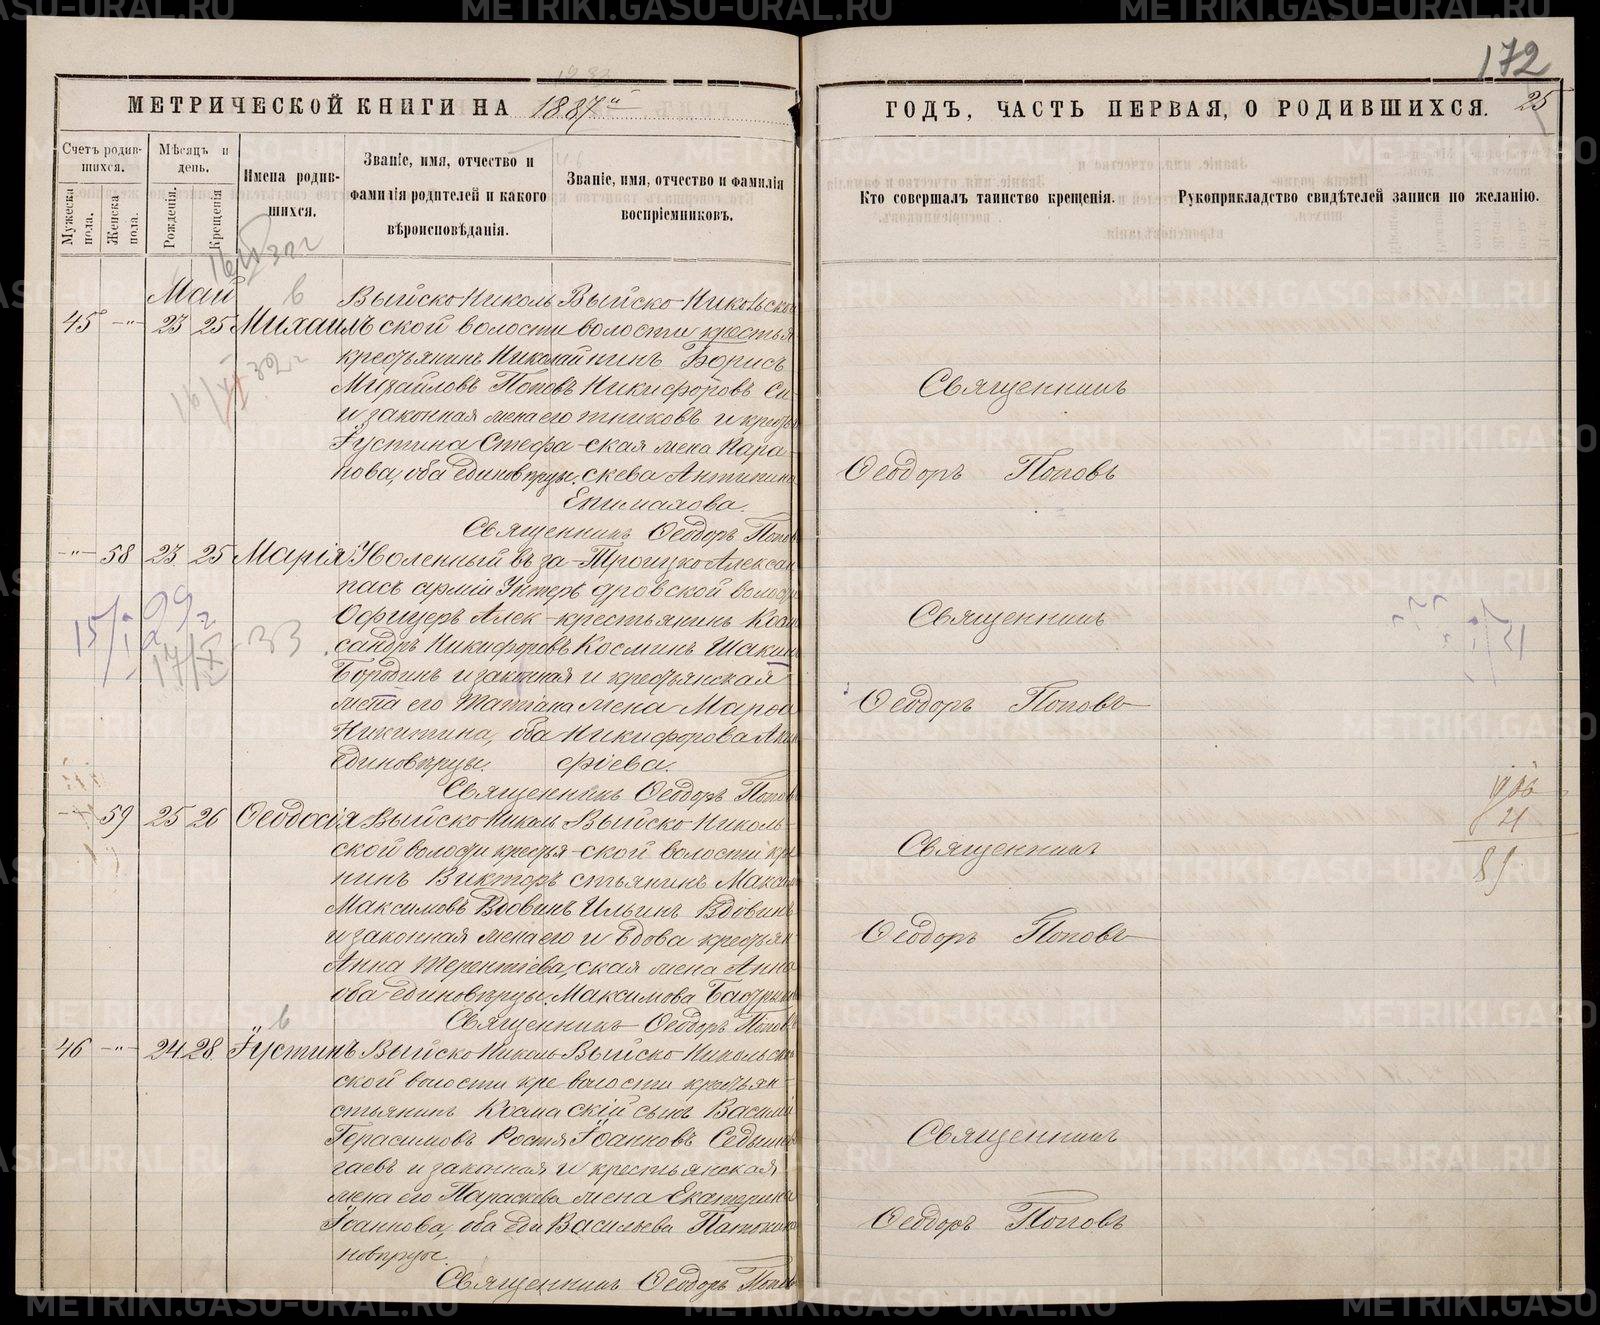 172
МЕТРИЧЕСКОЙ КНИГИ НА 1887й
ГОДЪ, ЧАСТЬ ПЕРВАЯ, О РОДИВШИХСЯ.
25
Счетъ родившихся.
Мужеска пола.
Женска пола.
Мѣсяцъ и день.
Рожденія.
Крещенія
Имена родившихся.
Званіе, имя, отчество и фамилія родителей и какого вѣроисповѣданія.
Званіе, имя, отчество и фамилія воспріемниковъ.
Кто совершалъ таинство крещенія.
Рукоприкладство свидѣтелей записи по желанію.
Май
45 -"- 23 25 Михаилъ
Выйско-Николь
ской волости
крестьянинъ Николай
Михайловъ Поповъ
и законная жена его
Іустина Стефа-
нова, оба единовѣрцы.
Выйско-Никольской
волости крестья
нинъ Борисъ
Никифоровъ Си
тниковъ и крестьян
ская жена Пара
скева Антипина
Епимахова.
Священникъ Ѳеодоръ Поповъ
Священникъ
Ѳеодоръ Поповъ
-"- 58 23 25 Марія
Уволенный въ за-
пасъ арміи Унтеръ
Офицеръ Алек-
сандръ Никифоровъ
Бородинъ и законная
жена его Татіана
Никитина, оба
единовѣрцы.
Троицко Алексан
дровской волости
крестьянинъ
Косминъ Шакинъ
и крестьянская
жена Марѳа
Никифорова
фіева.
Священникъ Ѳеодоръ Поповъ
Священникъ
Ѳеодоръ Поповъ
59 25 26 Ѳеодосія
Выйско Николь
ской волости крестья-
нинъ Викторъ
Максимовъ Вдовинъ
и законная жена его
Анна Терентіева,
оба единовѣрцы.
Выйско Николь-
ской волости кре
стьянинъ Максимъ
Ильинъ Вдовинъ
и вдова крестьян
ская жена Анна
Максимова
Священникъ Ѳеодоръ Поповъ
Священникъ
Ѳеодоръ Поповъ
46 -"- 24 28 Іустинъ
Выйско Николь
ской волости кре
стьянинъ Косма
Герасимовъ Ростя
гаевъ и законная
жена его Параскева
Іоаннова, оба еди
новѣрцы.
Выйско Никольской
волости крестьян-
скій сынъ Василій
Іоанновъ
и крестьянская
жена Екатерина
Васильева
Священникъ Ѳеодоръ Поповъ
Священникъ
Ѳеодоръ Поповъ
21
METRIKI.GASO-URAL.RU